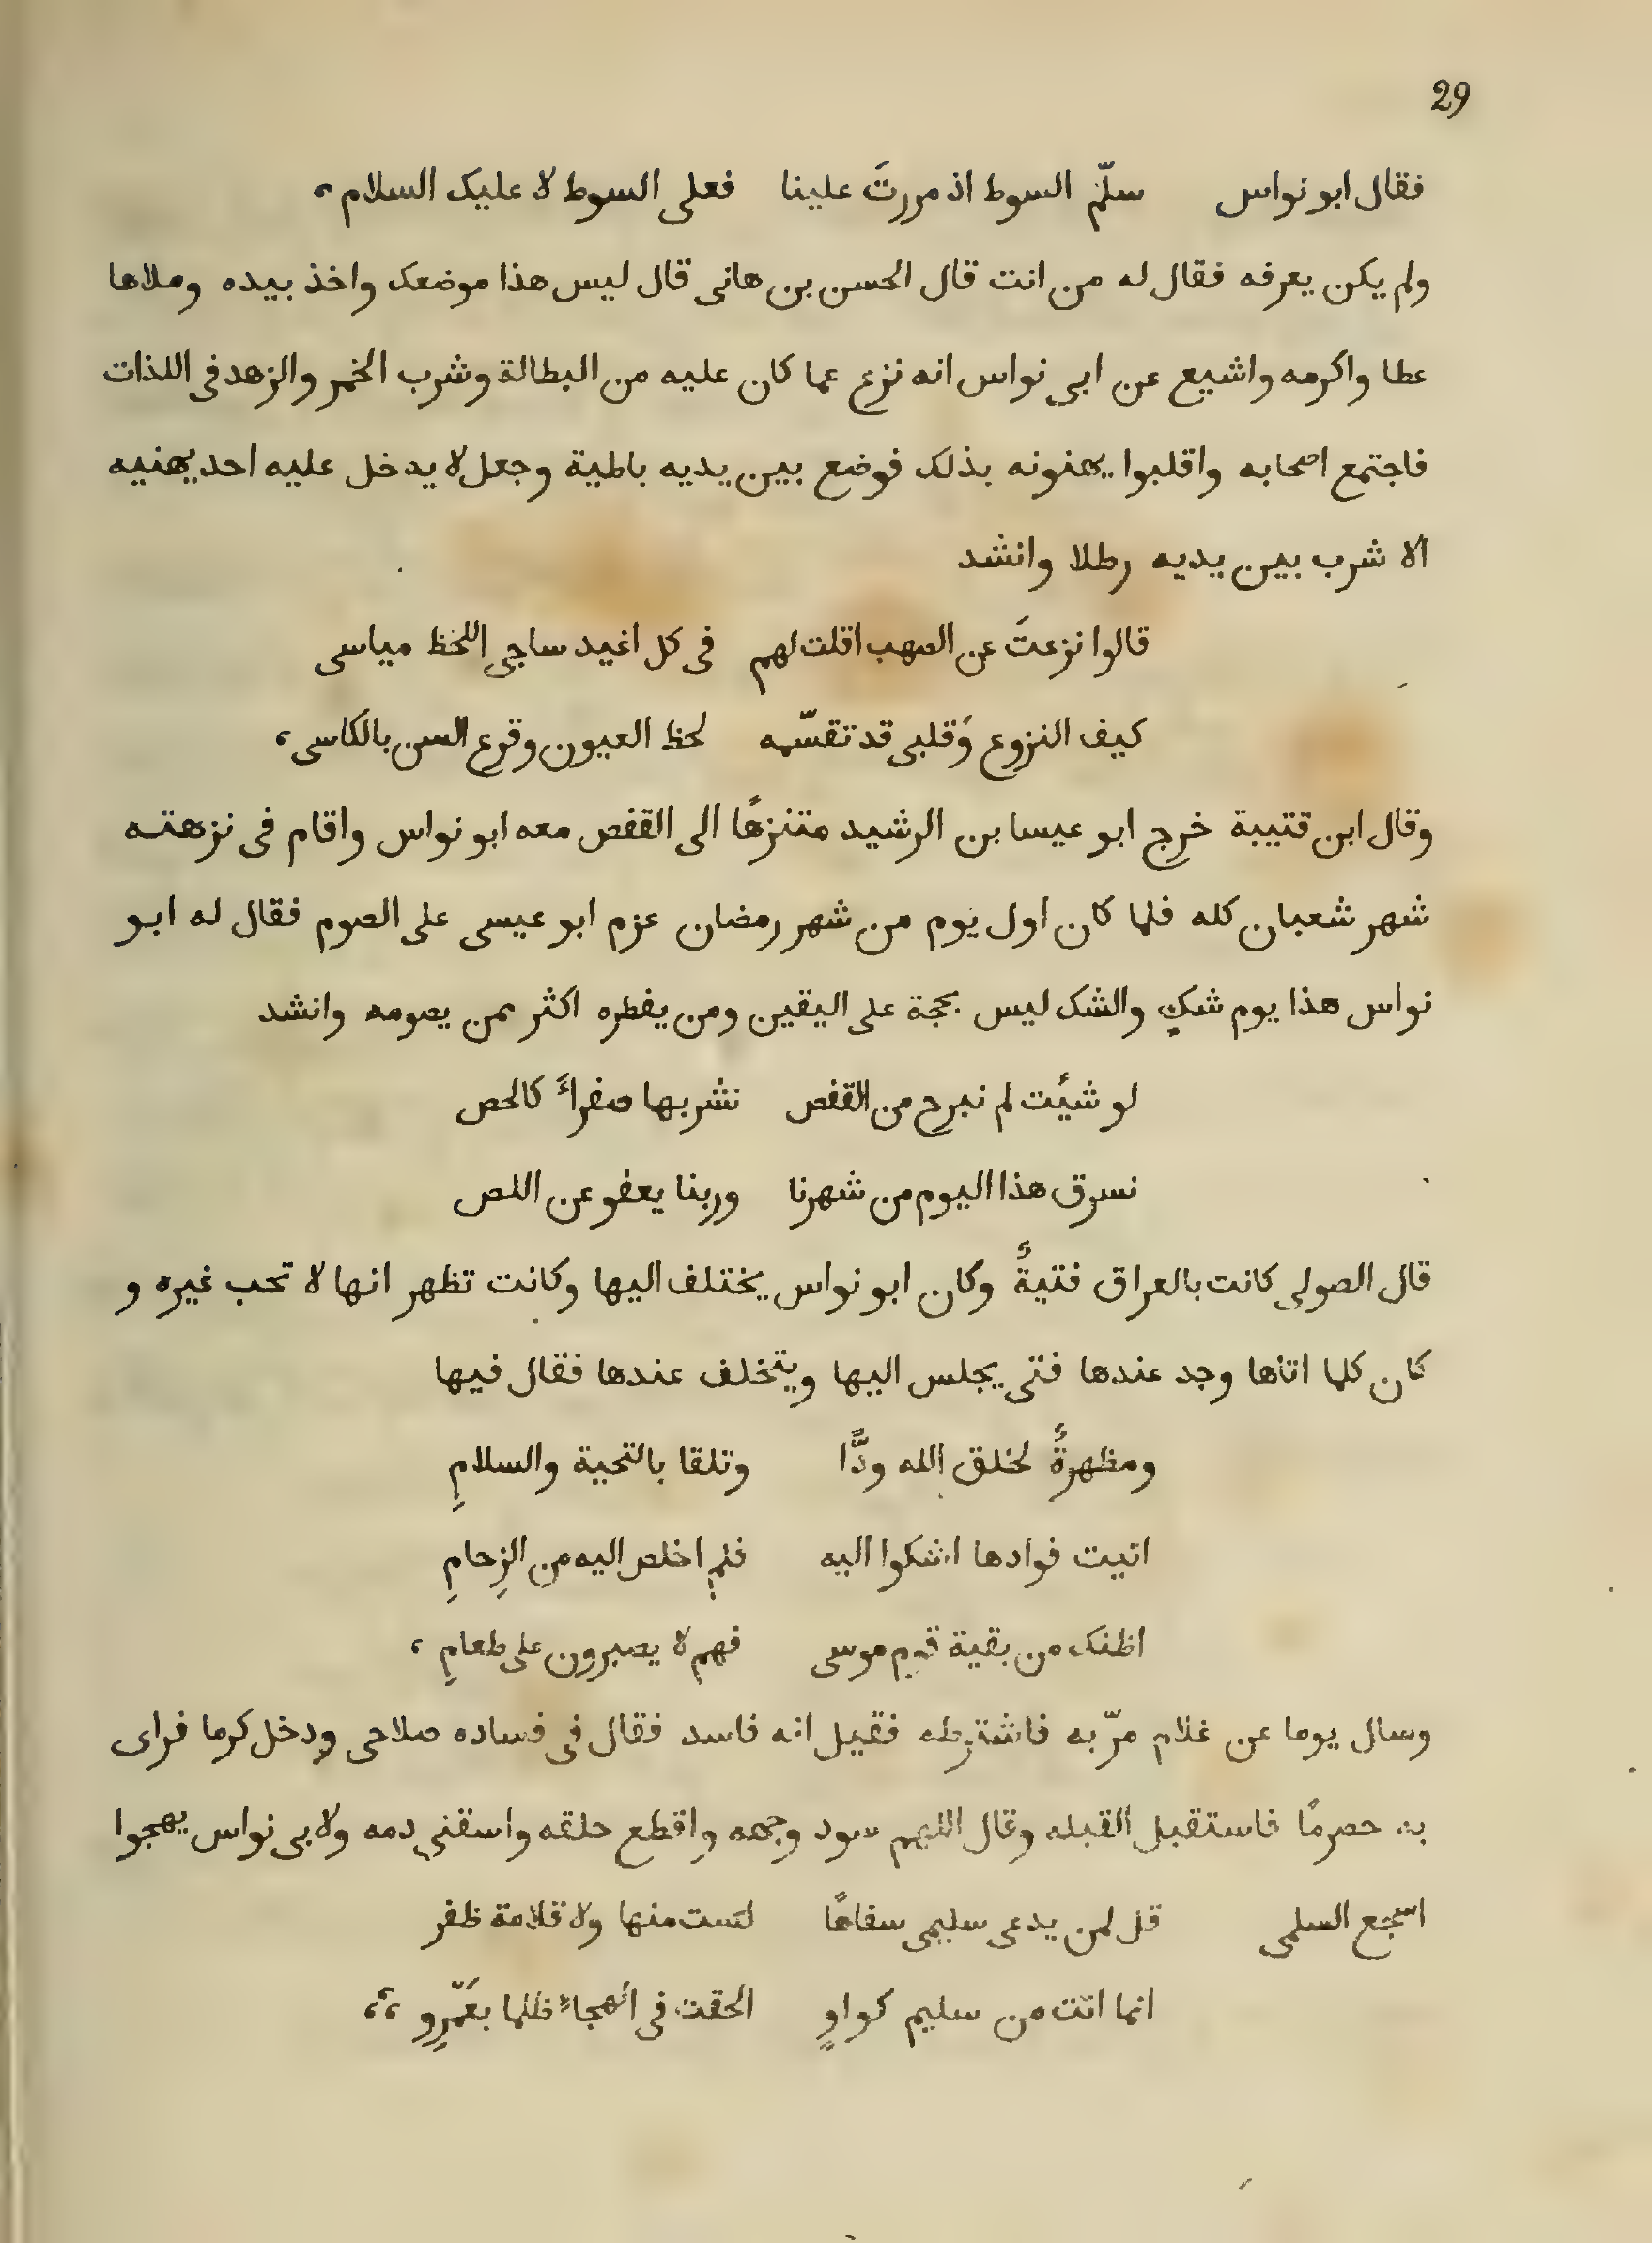 29
فقال ابو نواس سلّم السوط اذ مررتَ علينا فعلى السوط لا عليك السلام ،
ولم يكن يعرفه فقال له من انت قال الحسن بن هانى قال ليس هذا موضعك واخذ بيده وملاها
عطا واكرمه واشيع عن ابى نواس انه نزع عما كان عليه من البطالة وشرب الخمر والزهد فى اللذات
فاجتمع اصحابه واقلبوا يهنونه بذلك فوضع بين يديه باطية وجعل لا يدخل عليه احد يهنيه
الا شرب بين يديه رطلا وانشد
قالوا نزعتَ عن الصهب اقلت لهم فى كل اغيد ساجىِ اللحظ مياسى
كيف النزوع وَقلبى قد تقسّمه لحظ العيون وقرع السن بالكاسى ،
وقال ابن قتيبة خرج ابو عيسا بن الرشيد متنزهًا الى القفص معه ابو نواس واقام فى نزهته
شهر شعبان كله فلما كان اول يوم من شهر رمضان عزم ابو عيسى على الصوم فقال له ابو
نواس هذا يوم شكٍ والشك ليس بحجة على اليقين ومن يفطره اكثر ممن يصومه وانشد
لو شئت لم نبرح من القفص نشربها صفراءً كالحص
نسرق هذا اليوم من شهرنا وربنا يعفو عن اللص
قال الصولى كانت بالعراق فتيةٌ وكان ابو نواس يختلف اليها وكانت تظهر انها لا تحب غيره و
كان كلما اتاها وجد عندها فتى يجلس اليها ويتخلف عندها فقال فيها
ومظهرةٌ لخلق الله ودًّا وتلقا بالتحية والسلامِ
اتيت فوادها اشكوا اليه فلم اخلص اليه من الزِحامِ
اظنك من بقية قوم موسى فهم لا يصبرون على طعامِ ،
وسال يوما عن غلام مرّ به فاشترطه فقيل انه فاسد فقال فى فساده صلاحى ودخل كرما فراى
به حصرمًا فاستقبل القبله وقال اللهم سود وجهه واقطع حلقه واسقنى دمه ولابى نواس يهجوا
اسجع السلمى قل لمن يدعى سليمى سفاهًا لست منها ولا قلامة ظفر
انما انت من سليم كواوٍ الحقت فى الهجاءِ ظلما بعَمّرٍو ،،،